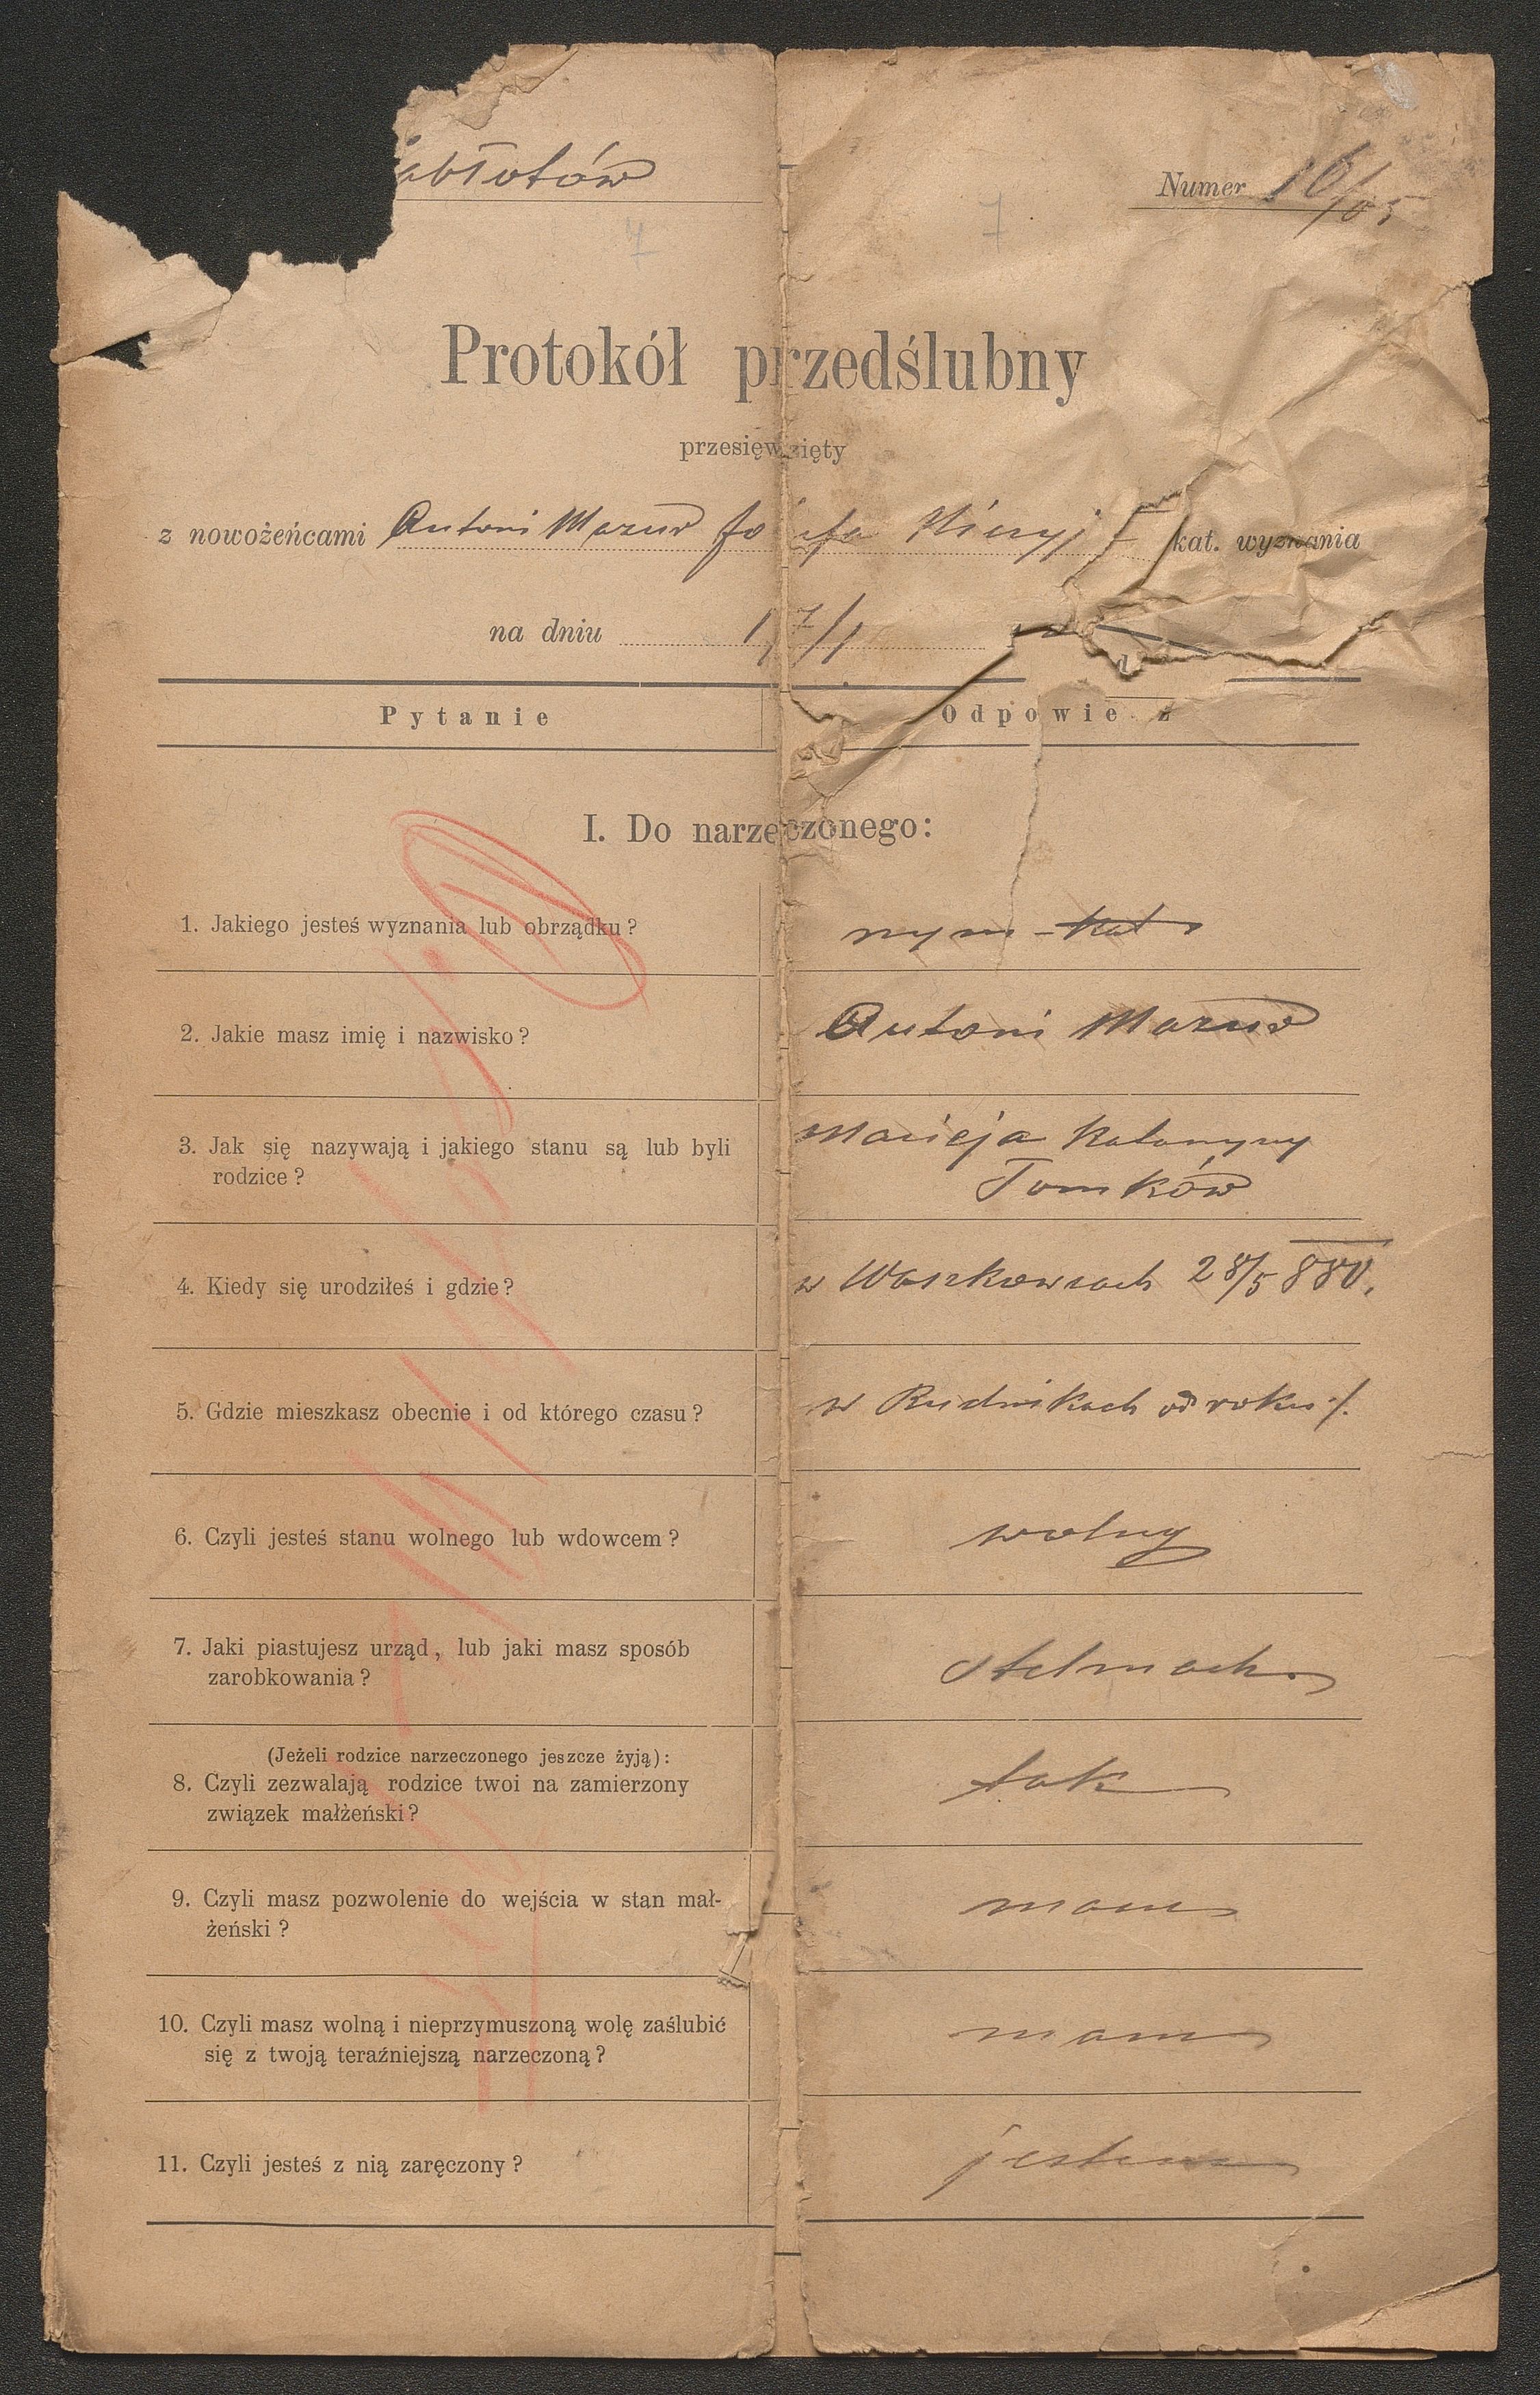 abłotów
Numer 10/05
7 7
Protokół przedślubny
przesięwzięty
z nowożeńcami Antoni Mazur kat. wyznania
na dniu 17/1
Pytanie Odpowie z
I. Do narzeczonego:
1. Jakiego jesteś wyznania lub obrządku? rzym-kat
2. Jakie masz imię i nazwisko? Antoni Mazur
3. Jak się nazywają i jakiego stanu są lub byli Macieja Katarzyny
rodzice? Tomków
4. Kiedy się urodziłeś i gdzie? w Waszkowcach 28/5 880.
5. Gdzie mieszkasz obecnie i od którego czasu? w Rudnikach od roku
6. Czyli jesteś stanu wolnego lub wdowcem? wolny
7. Jaki piastujesz urząd, lub jaki masz sposób
zarobkowania? stelmach
(Jeżeli rodzice narzeczonego jeszcze żyją):
8. Czyli zezwalają rodzice twoi na zamierzony tak
związek małżeński?
9. Czyli masz pozwolenie do wejścia w stan mał- mam
żeński?
10. Czyli masz wolną i nieprzymuszoną wolę zaślubić mam
się z twoją teraźniejszą narzeczoną?
11. Czyli jesteś z nią zaręczony? jestem